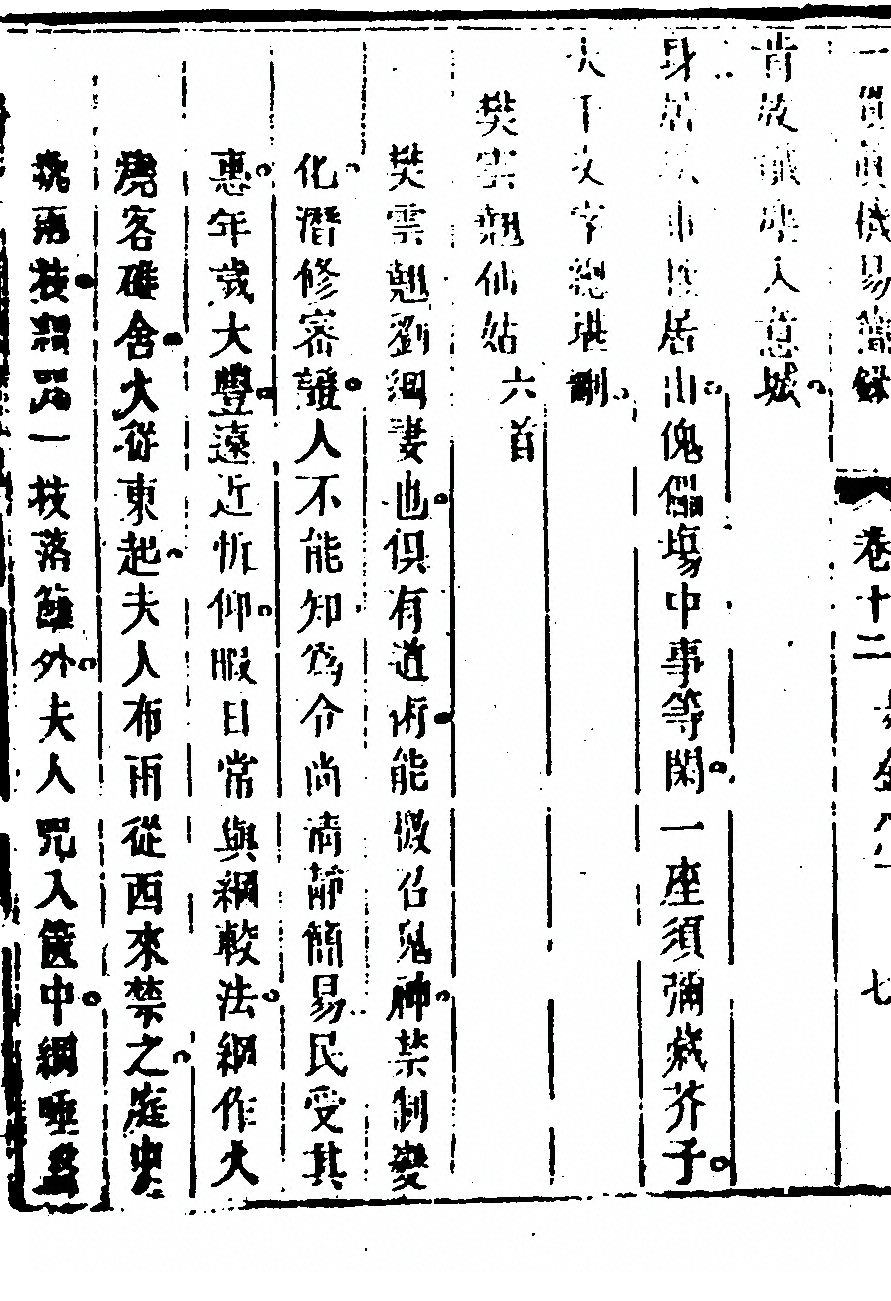 一貫真機易簡錄　卷十二　七
肯放纖塵入意城
身居城市性居山傀儡場中事等閑一座須彌藏芥子
大千文字總堪刪
樊雲翹仙姑 六首
樊雲翹劉綱妻也俱有道術能檄召鬼神禁制變
化潛修密證人不能知為令尚清靜簡易民受其
惠年歲大豐遠近忻仰暇日常與綱較法綱作火
燒客碓舍火從東起夫人布雨從西來禁之庭中
桃兩枝綱咒一枝落籬外夫人咒入篋中綱唾盤